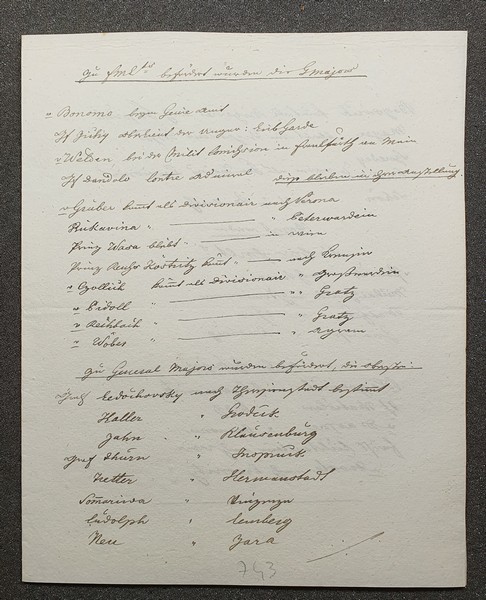 Zu Fml ts befördert wurden die Gmajors
v Bonomo beym Genie Amt
v Welden bei der Milit Comission in Frankfurth am Main
Gf Dandolo Contre Admiral diese bleiben in ihrer Anstellung.
v Gruber kommt als Divisionair nach Verona
Rukavina " — " Peterwardein
Prinz Wasa bleibt " — in Wien
Prinz Reuss Köstritz kommt " — nach
v Csollich kommt als Divisionair " Großwardein
v — " Gratz
v Rechbach — " Gratz
v Wöber — " Agram
Zu General Majors wurden befördert, die Obersten:
Graf Ledochovsky nach Theresienstadt bestimmt
Haller " Grodeck
Jahn " Klausenburg
Graf Thurn " Inspruck
Retter " Hermanstadt
Somariva " Vinzenza
Ludolph " Lemberg
Neu " Zara
743